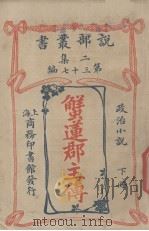 說部叢書
二集
第三十七編
政治小說
蟹蓮郡主傳
上海
商務印書館發行